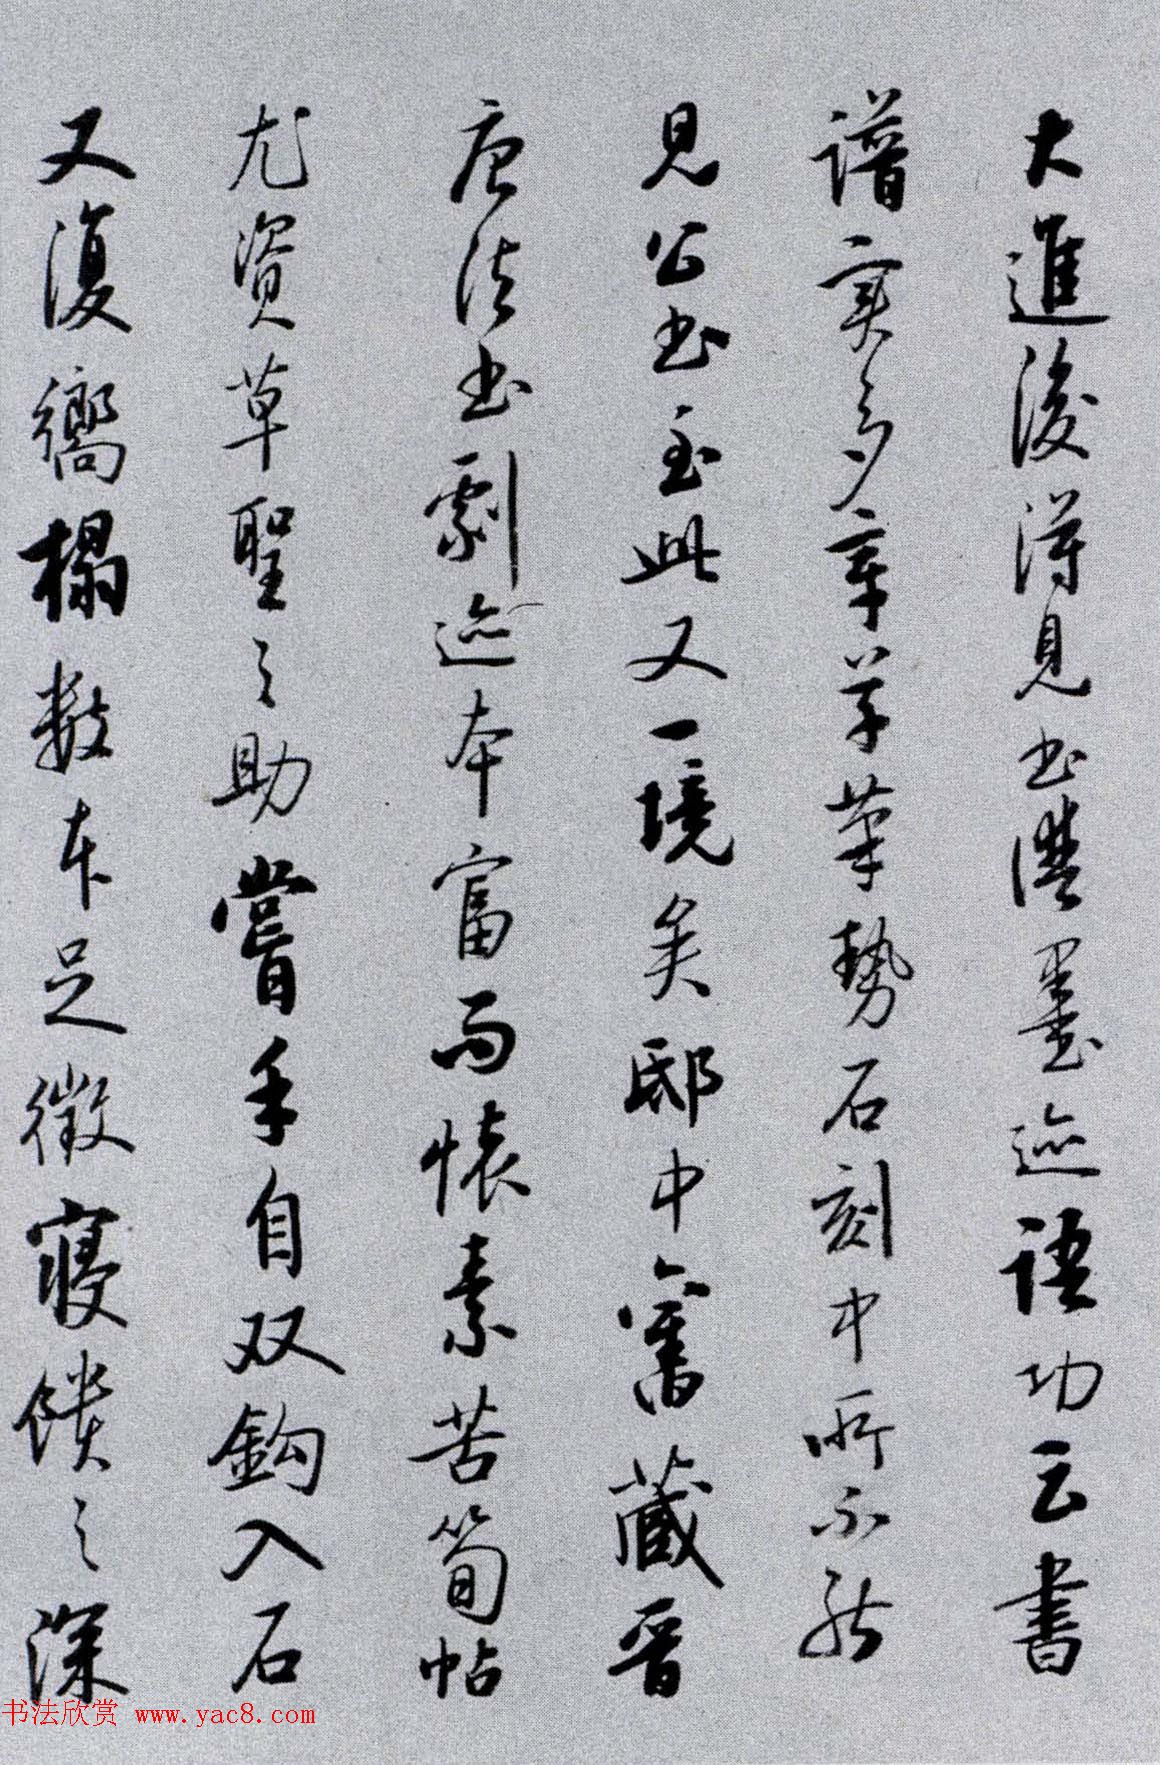 大進後得見书譜墨迹語功云書
譜实多章草筆勢石刻中所不能
見公书至此又一境矣邸中舊藏晋
唐法书劇迹本富而懷素苦筍帖
尤資草聖之助嘗手自双鈎入石
又復嚮榻数本足徵寢饋之深
书法欣赏 www.yac8.com